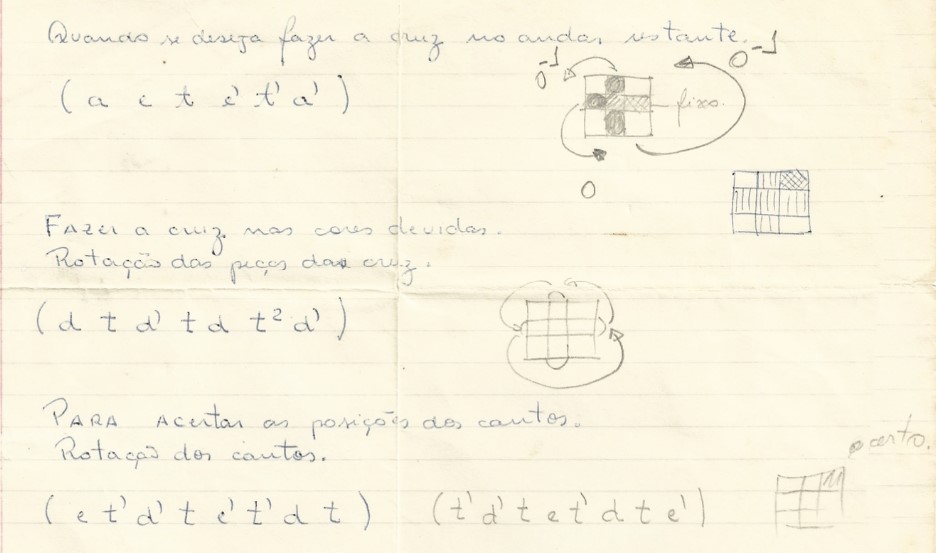 Quando se deseja fazer a cruz no andar restante.
0⁻¹
0⁻¹
( a e t e' t' a' )
fixo.
0
FAZER a cruz nas cores devidas.
Rotação das peças da cruz.
( d t d' t d t² d' )
PARA Acertar as posições dos cantos.
Rotação dos cantos.
certo.
( e t' d' t e' t' d t )
( t' d' t e t' d t e' )